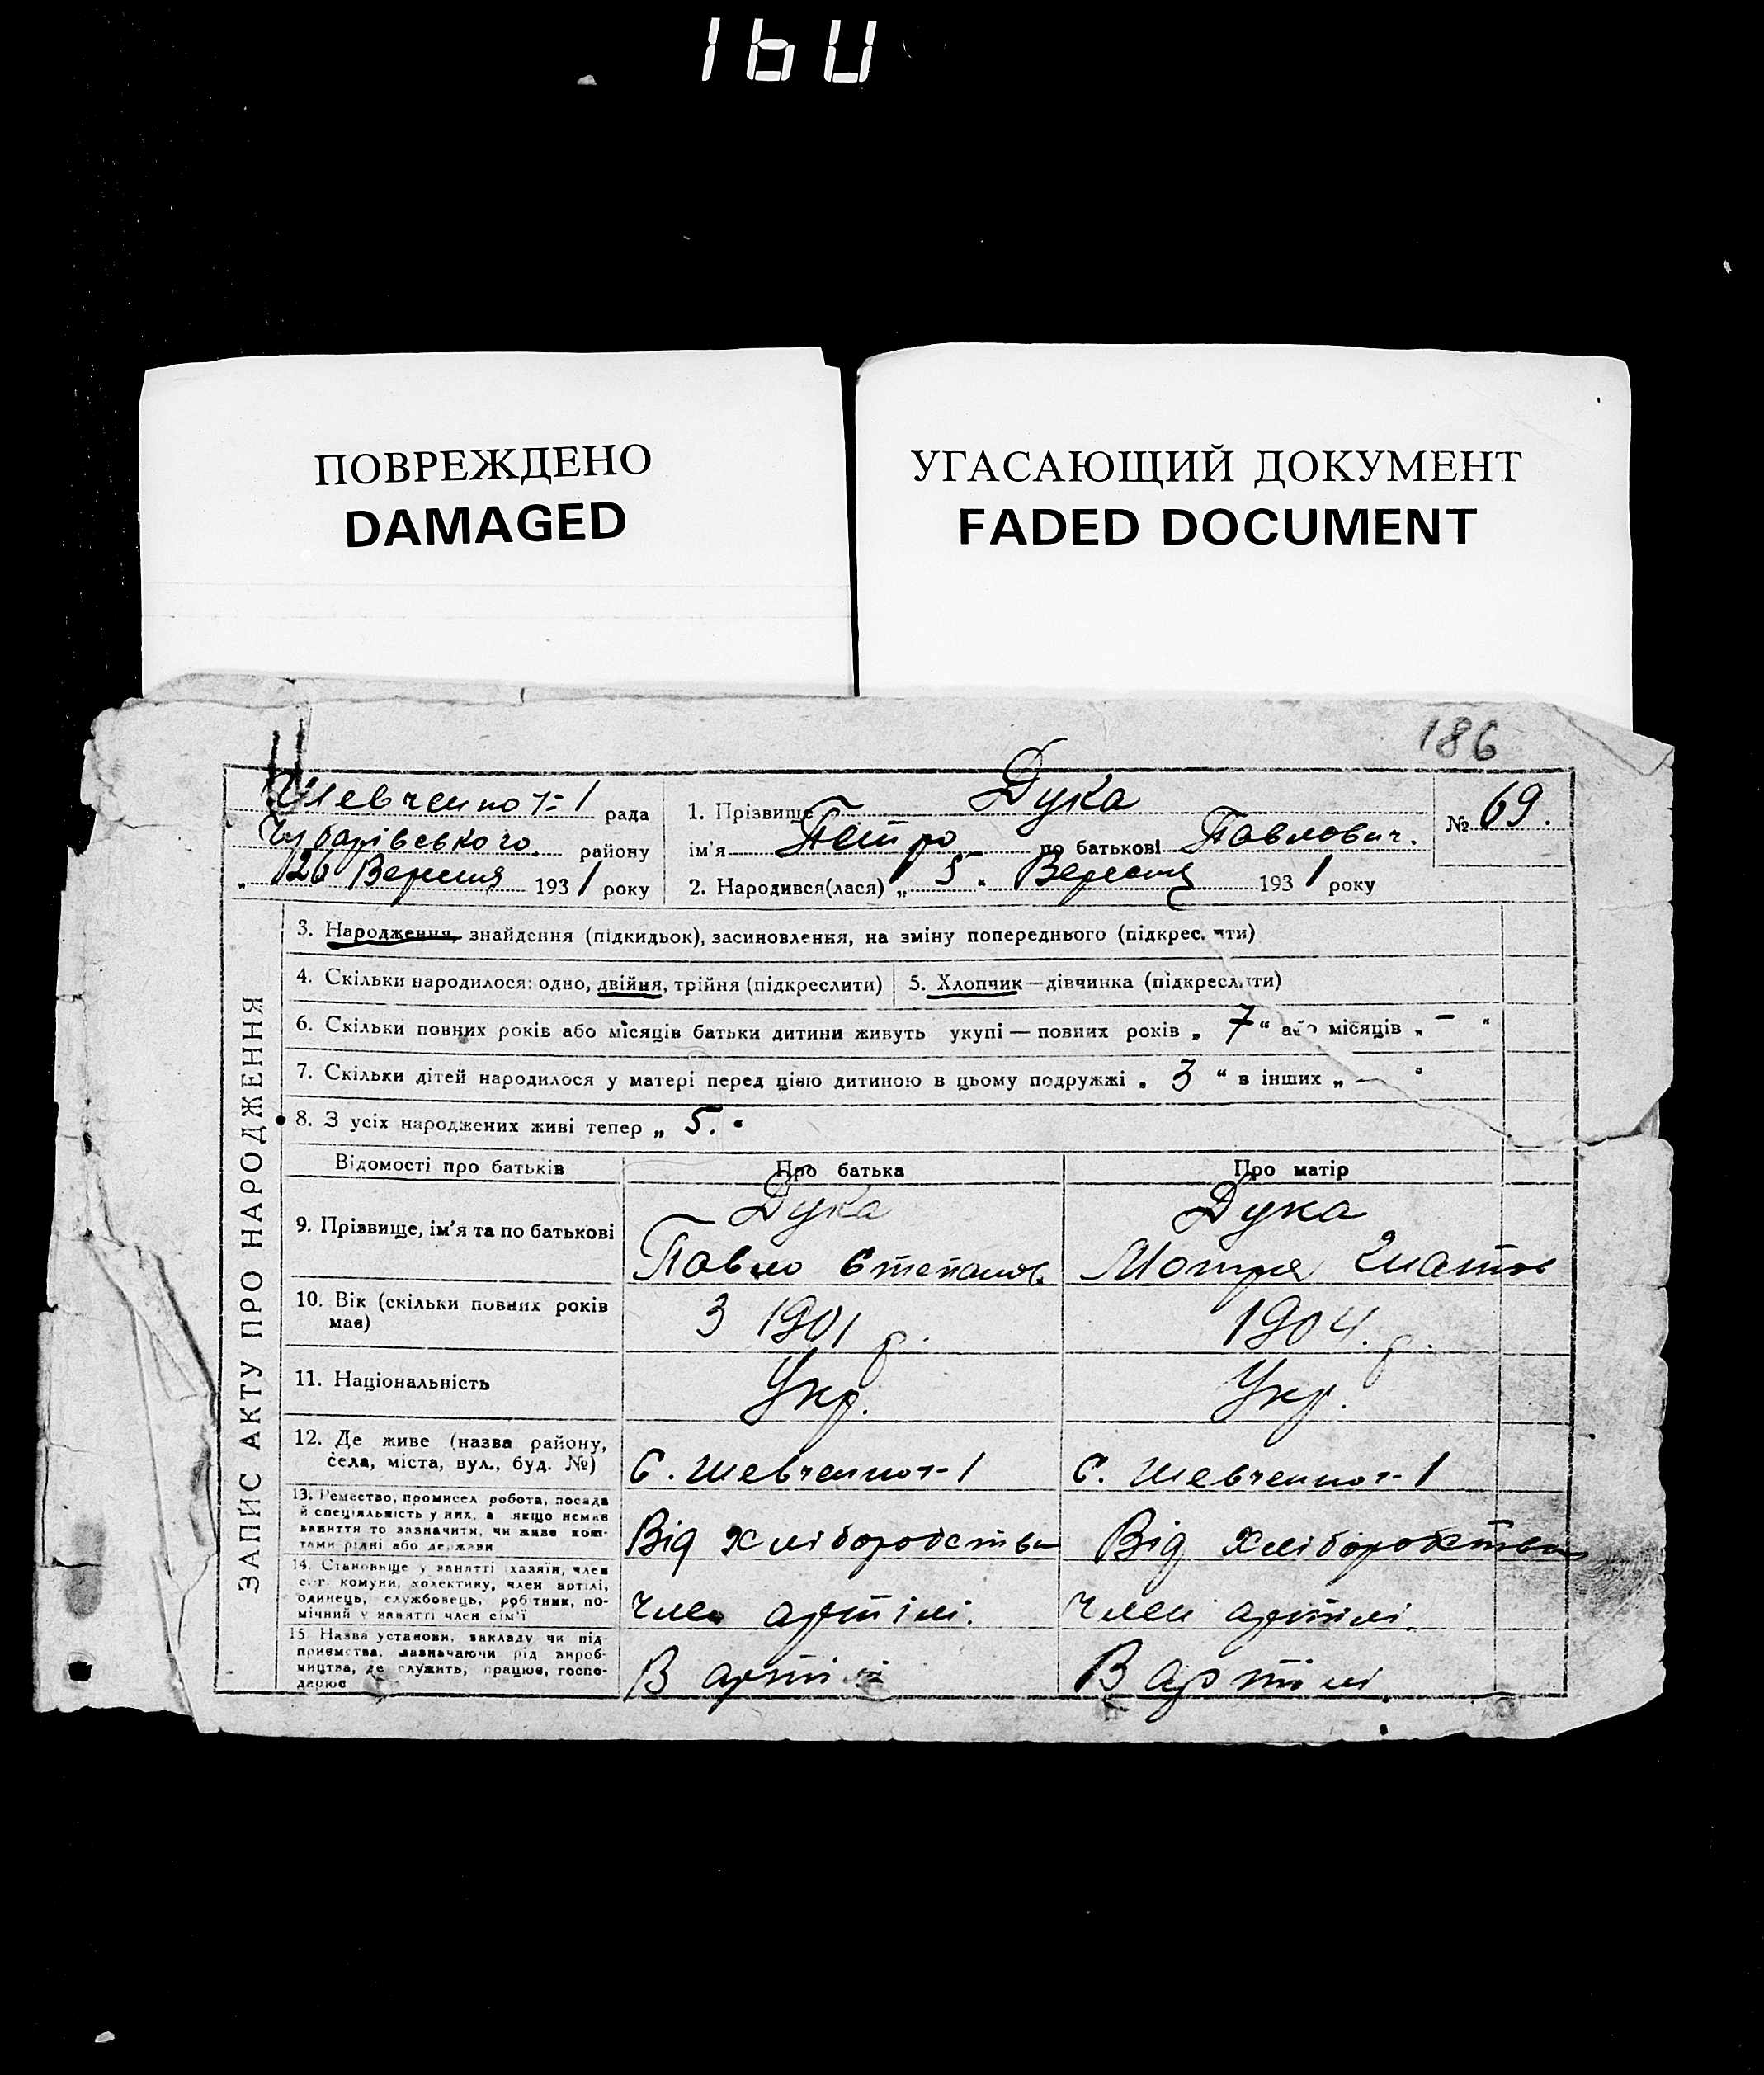 160
ПОВРЕЖДЕНО
DAMAGED
УГАСАЮЩИЙ ДОКУМЕНТ
FADED DOCUMENT
186
Шевченко 1 рада
Чубарівського району
„ 26 Вересня 1931 року
1. Прізвище Дука
ім'я Петро по батькові Павлович.
2. Народився(лася) „ 5 " Вересня 1931 року
№ 69.
ЗАПИС АКТУ ПРО НАРОДЖЕННЯ
3. Народження, знайдення (підкидьок), засиновлення, на зміну попереднього (підкрес. ти)
4. Скільки народилося: одно, двійня, трійня (підкреслити)
5. Хлопчик — дівчинка (підкреслити)
6. Скільки повних років або місяців батьки дитини живуть укупі — повних років „ 7 " або місяців „ – "
7. Скільки дітей народилося у матері перед цією дитиною в цьому подружжі „ 3 " в інших „ — "
8. З усіх народжених живі тепер „ 5. "
Відомості про батьків
Про батька
Про матір
9. Прізвище, ім'я та по батькові
Дука
Павло Степанов.
Дука
Мотря
10. Вік (скільки повних років
має)
З 1901 р.
1904. р.
11. Національність
Укр.
Укр.
12. Де живе (назва району,
села, міста, вул., буд. №)
С. Шевченко 1
С. Шевченко 1
13. Ремество, промисел робота, посада
й спеціяльність у них, а якщо немає
заняття то зазначити, чи живе кош-
тами рідні або держави
Від хліборобства
Від хліборобства
14. Становище у занятті (хазяїн, член
с.-г. комуни, колективу, член артілі,
одинець, службовець, робітник, по-
мічний у занятті член сім'ї
Член артілі.
Член артілі.
15 Назва установи, закладу чи під-
приємства, зазначаючи рід вироб-
ництва, де служить, працює, госпо-
дарює
В артілі
В артілі.